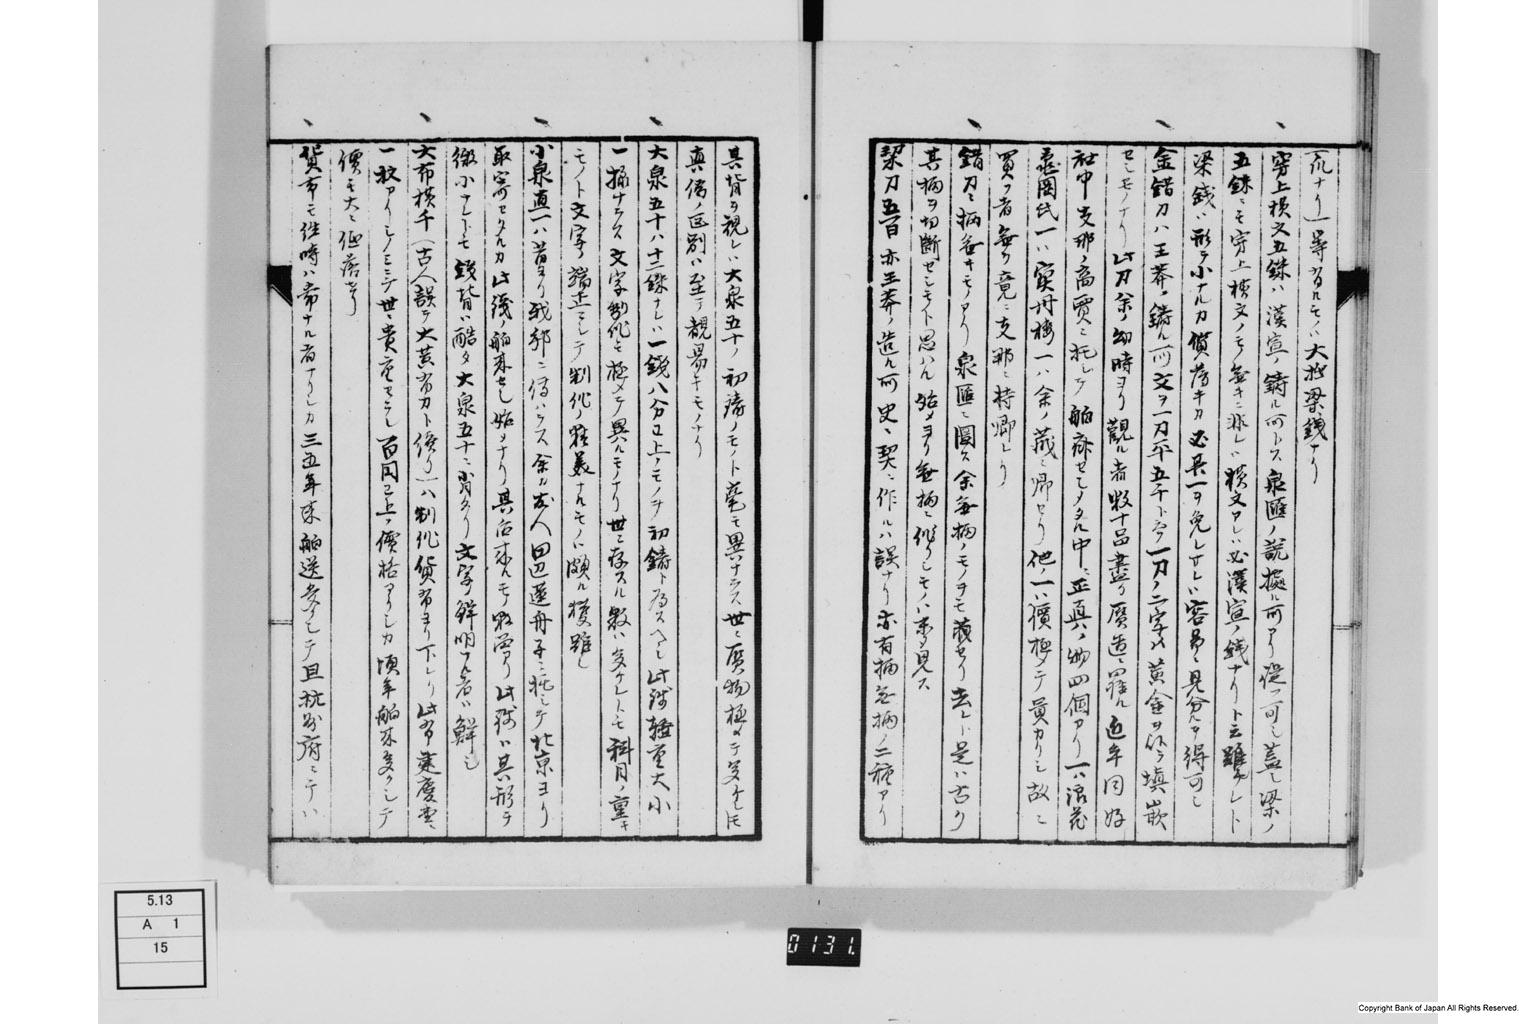 穿上横文五銖ハ漢宣ノ鋳ル所トス泉匯ノ説拠ル所アリ従フ可シ蓋シ梁ノ
五銖ニモ穿上横文ノモノ無キニ非レハ横文アレハ必漢宣ノ銭ナリト云難カレト
梁銭ハ形チ小ナルカ質薄キカ必具一ヲ免レサレハ容易ニ見分ルヲ得可シ
金錯刀ハ王莽ノ鋳ル所文ヲ一刀平五千ト云フ一刀ノ二字ハ黄金ヲ以テ填嵌
セシモノナリ此刀余ノ幼時ヨリ観ル者数十品盡ク贋造ニ罹ル近年同好
社中支那ノ商賈ニ托シテ舶齎セシメタル中ニ正真ノ物四個アリ一ハ浪花
亀岡氏一ハ寳丹楼一ハ余ノ蔵ニ帰セリ他ノ一ハ價極メテ貴カリシ故ニ
買フ者無ク竟ニ支那ニ持帰レリ
錯刀ニ柄無キモノアリ泉匯ニ図ス余無柄ノモノヲモ蔵セリ去レト是ハ古ク
其柄ヲ切断セシモノト思ハル始メヨリ無柄ニ作リシモノハ未タ見ス
栔刀五百亦王莽ノ造ル所史ニ契ニ作ルハ誤ナリ亦有柄無柄ノ二種アリ
其背ヲ視レハ大泉五十ノ初鋳ノモノト毫モ異ナラス世ニ贋物極メテ多ケレトモ
真偽ノ区別ハ至テ観易キモノナリ
大泉五十ハ十二銖ナレハ一銭八分以上ノモノヲ初鋳ト為スヘシ此銭軽重大小
一様ナラス文字製作モ極メテ異ルモノナリ世ニ存スル数ハ多ケレトモ斤目ノ重キ
モノト文字ノ端正ニシテ制作ノ精美ナルモノハ頗ル獲難シ
小泉直一ハ昔ヨリ我邦ニ傳ハラス余カ友人田辺蓮舟子ニ托シテ北京ヨリ
取寄セタルカ此銭ノ舶来セシ始メナリ其后来ルモノ数品アリ此銭ハ其形チ
微小ナレトモ銭背ハ酷タ大泉五十ニ肖タリ文字鮮明ナル者ハ鮮シ
一枚アリシノミニテ世ニ貴重セラレシ百円已上ノ價格アリシカ頃年舶来多クシテ
價モ大ニ低落セリ
貨布モ往時ハ希ナル者ナリシカ三五年来舶送多クシテ且杭州府ニテハ
5.13
A 1
15
0131.
Copyright Bank of Japan All Rights Reserved.